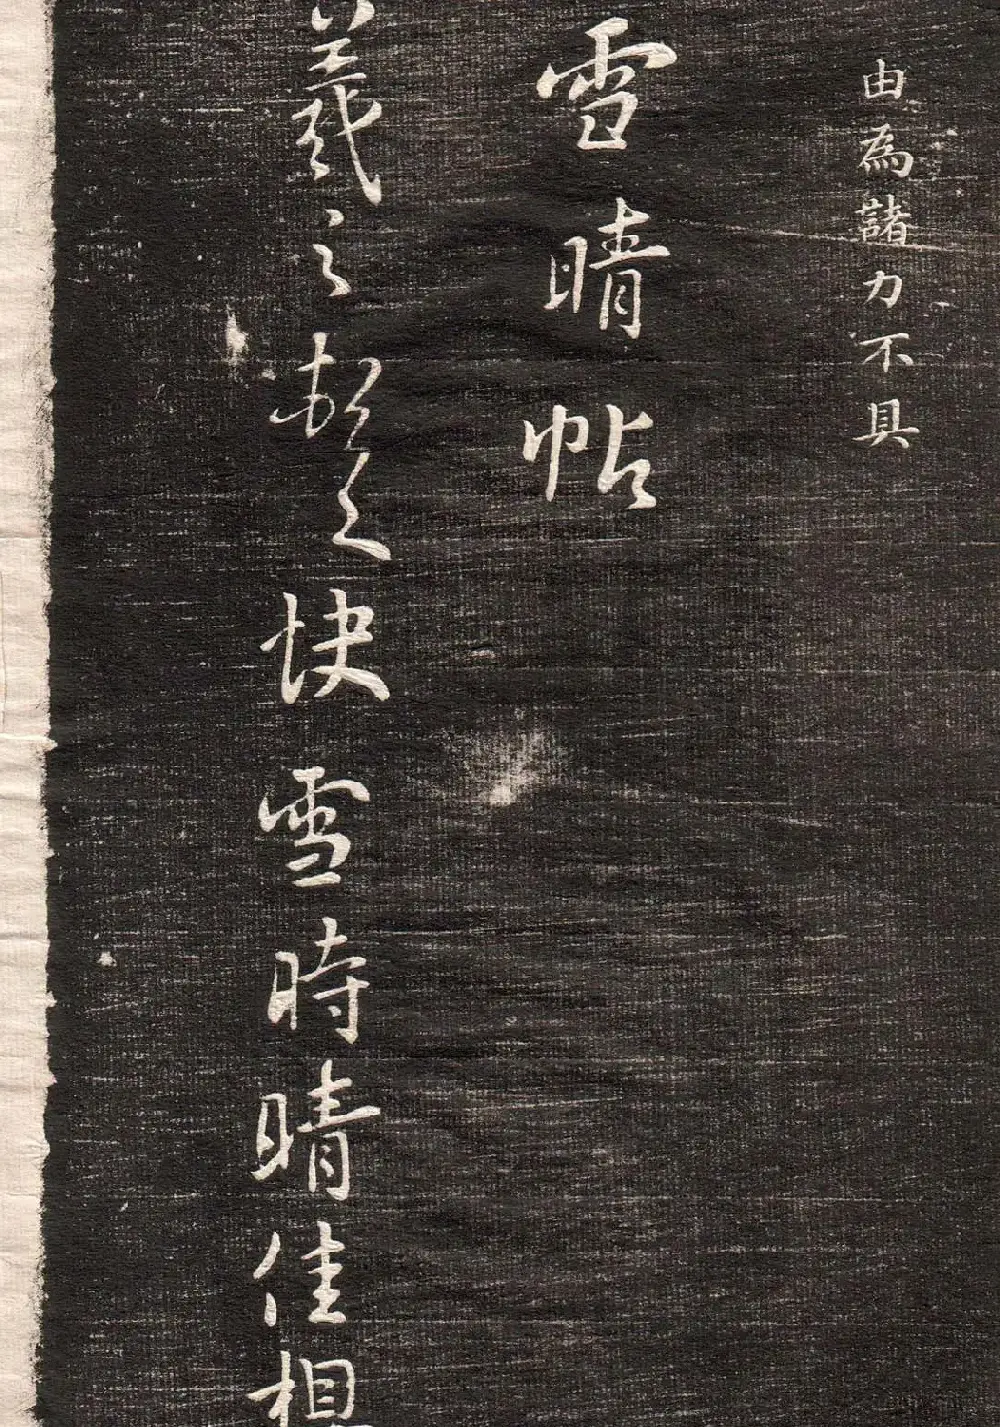 由為諸力不具
雪晴帖
羲之頓首快雪時晴佳想